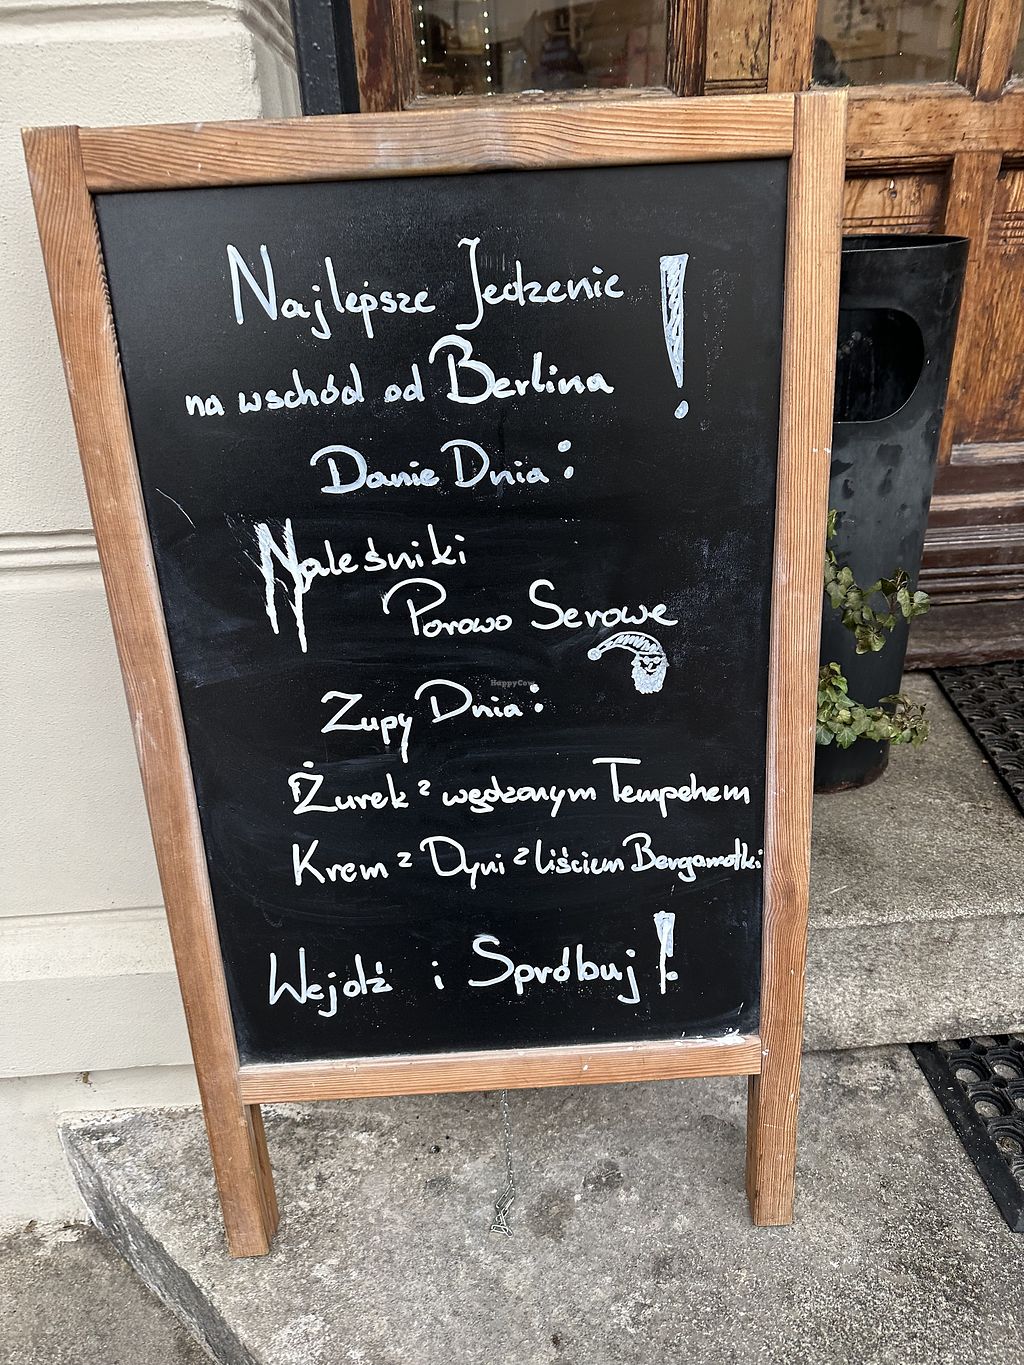 Najlepsze Jedzenie !
na wschód od Berlina
Danie Dnia:
Naleśniki
Porowo Serowe
HappyCow
Zupy Dnia:
Żurek z wędzonym Tempehem
Krem z Dyni z liściem Bergamotki
Wejdź i Spróbuj!